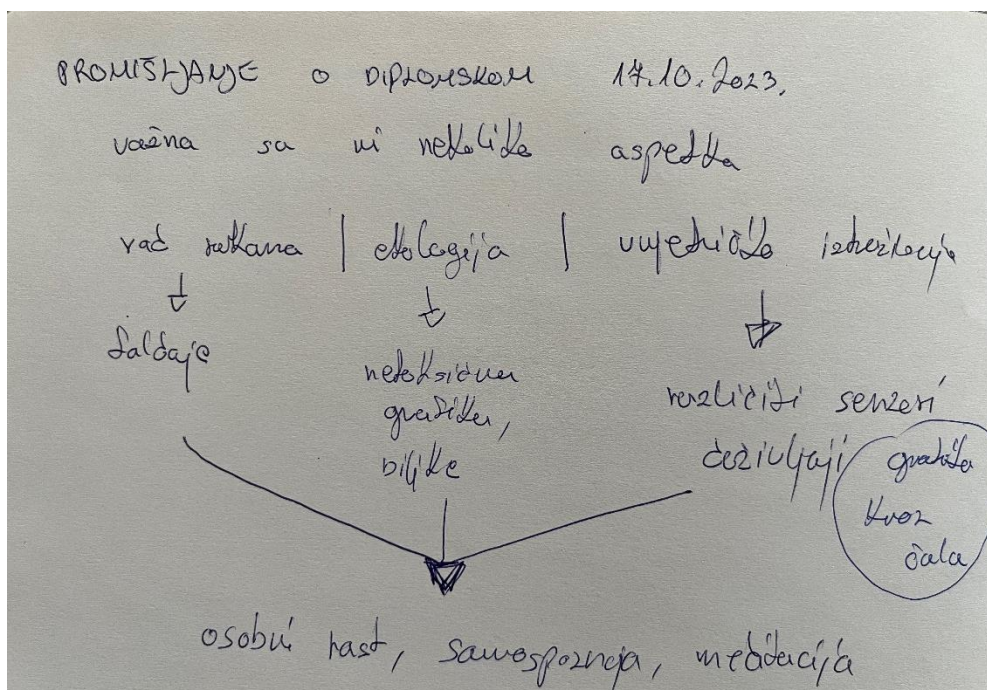 PROMIŠLJANJE O DIPLOMSKOM 17.10.2023.
važna su mi nekoliko aspekta
rad rukama | ekologija | umjetničko istraživanje
netoksična
grafika,
biljke
različiti senzorni
doživljaji
grafika
kroz
čula
osobni rast, samospoznaja, meditacija